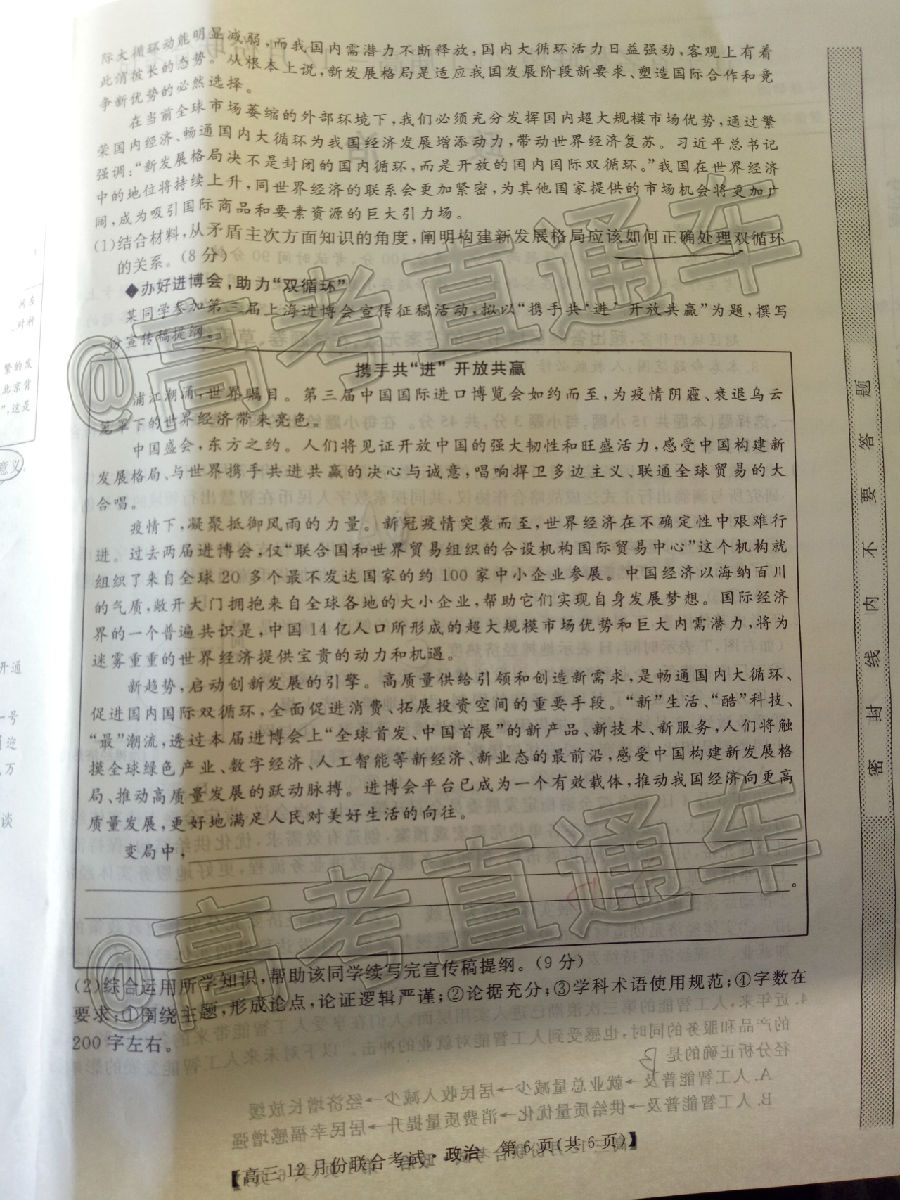 际大循环动能明显减弱,而我国内需潜力不断释放,国内大循环活力日益强劲,客观上有着
此消彼长的态势。从根本上说,新发展格局是适应我国发展阶段新要求、塑造国际合作和竞
争新优势的必然选择。
在当前全球市场萎缩的外部环境下,我们必须充分发挥国内超大规模市场优势,通过繁
荣国内经济、畅通国内大循环为我国经济发展增添动力,带动世界经济复苏。习近平总书记
强调:“新发展格局决不是封闭的国内循环,而是开放的国内国际双循环。”我国在世界经济
中的地位将持续上升,同世界经济的联系会更加紧密,为其他国家提供的市场机会将更加广
阔,成为吸引国际商品和要素资源的巨大引力场。
(1)结合材料,从矛盾主次方面知识的角度,阐明构建新发展格局应该如何正确处理双循环
的关系。(8分)
◆办好进博会,助力“双循环”
某同学参加第三届上海进博会宣传征稿活动,拟以“携手共‘进’ 开放共赢”为题,撰写
份宣传稿提纲。
携手共“进” 开放共赢
浦江潮涌,世界瞩目。第三届中国国际进口博览会如约而至,为疫情阴霾、衰退乌云
笼罩下的世界经济带来亮色。
中国盛会,东方之约。人们将见证开放中国的强大韧性和旺盛活力,感受中国构建新
发展格局、与世界携手共进共赢的决心与诚意,唱响捍卫多边主义、联通全球贸易的大
合唱。
疫情下,凝聚抵御风雨的力量。新冠疫情突袭而至,世界经济在不确定性中艰难行
进。过去两届进博会,仅“联合国和世界贸易组织的合设机构国际贸易中心”这个机构就
组织了来自全球20多个最不发达国家的约100家中小企业参展。中国经济以海纳百川
的气质,敞开大门拥抱来自全球各地的大小企业,帮助它们实现自身发展梦想。国际经济
界的一个普遍共识是,中国14亿人口所形成的超大规模市场优势和巨大内需潜力,将为
迷雾重重的世界经济提供宝贵的动力和机遇。
新趋势,启动创新发展的引擎。高质量供给引领和创造新需求,是畅通国内大循环、
促进国内国际双循环,全面促进消费、拓展投资空间的重要手段。“新”生活、“酷”科技、
“最”潮流,透过本届进博会上“全球首发、中国首展”的新产品、新技术、新服务,人们将触
摸全球绿色产业、数字经济、人工智能等新经济、新业态的最前沿,感受中国构建新发展格
局、推动高质量发展的跃动脉搏。进博会平台已成为一个有效载体,推动我国经济向更高
质量发展,更好地满足人民对美好生活的向往。
变局中,
。
(2)综合运用所学知识,帮助该同学续写完宣传稿提纲。(9分)
要求:①围绕主题,形成论点,论证逻辑严谨;②论据充分;③学科术语使用规范;④字数在
200字左右。
【高三12月份联合考试·政治 第6页(共6页)】
密 封 线 内 不 要 答 题
@高考直通车
@高考直通车